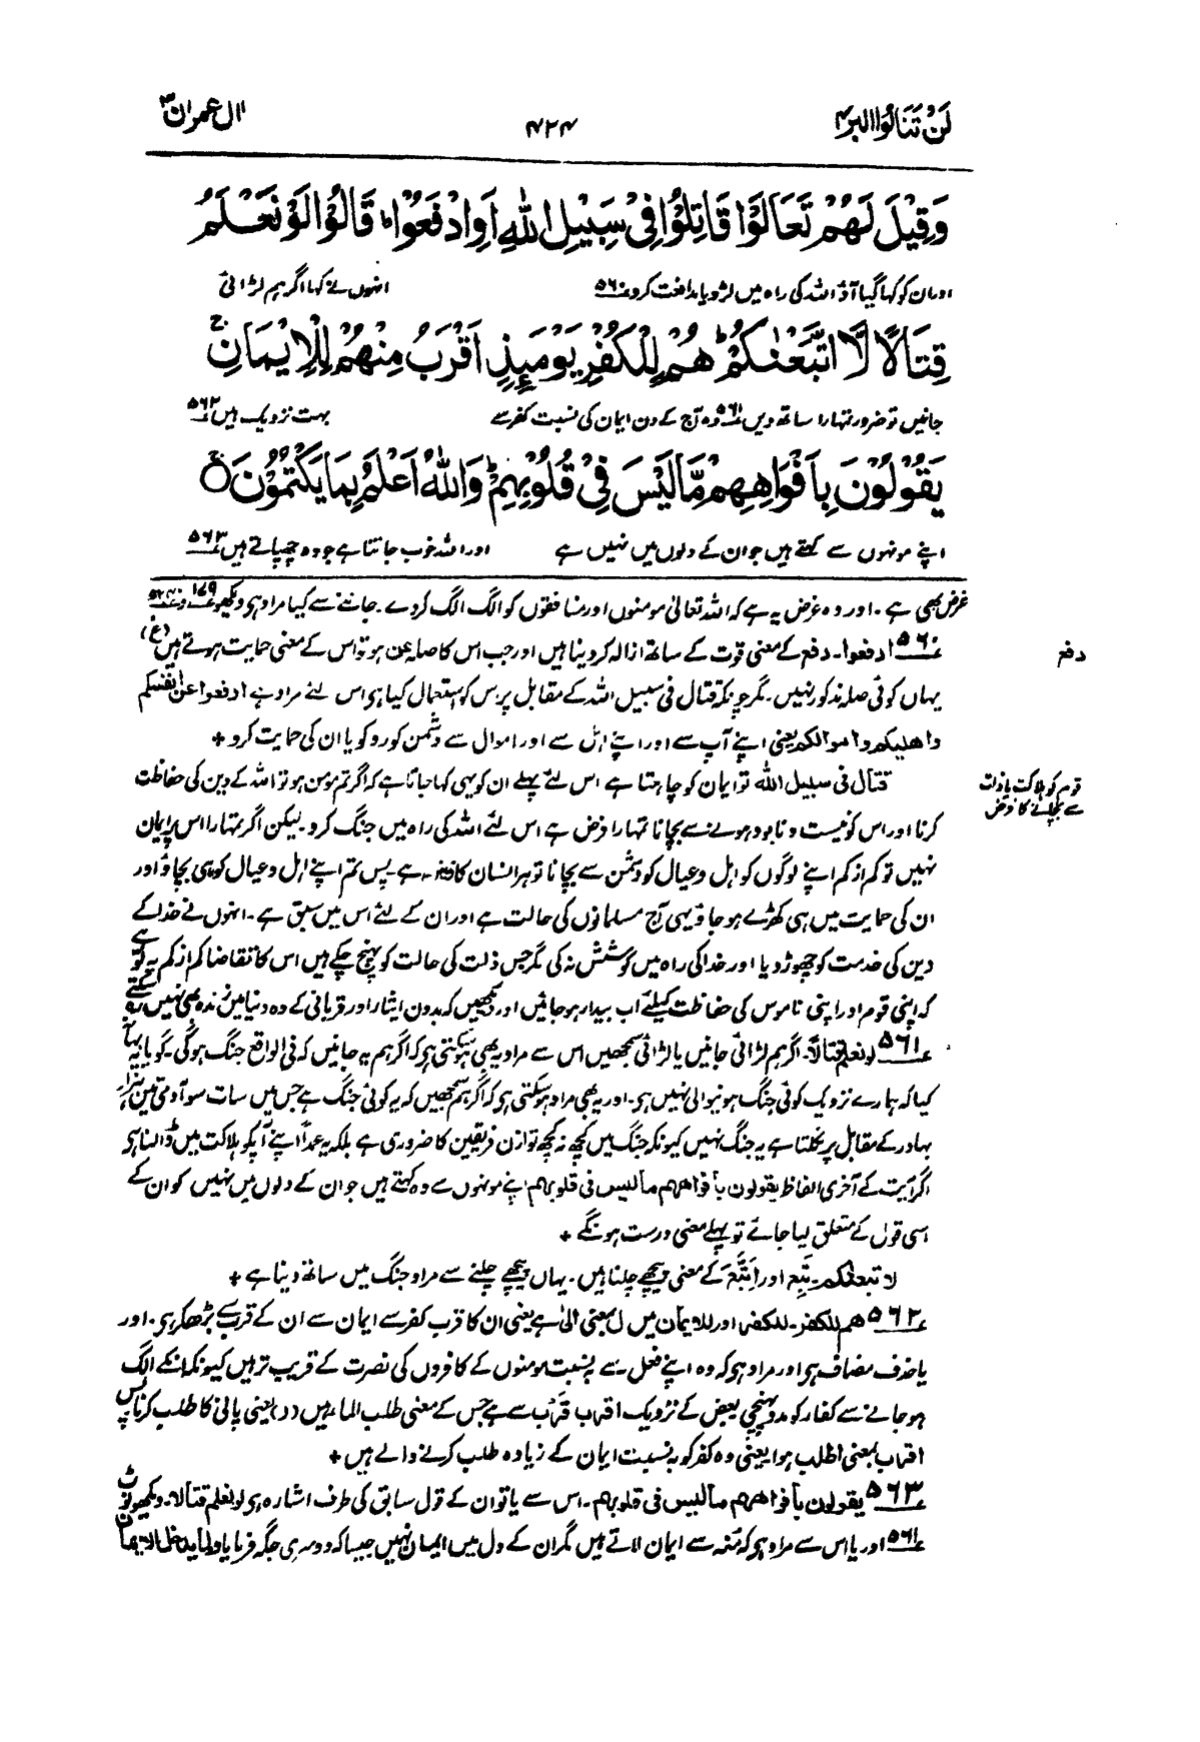 لَنْ تَنَالُوا البر ۴
۴۲۴
اٰل عمران ۳
وَقِيْلَ لَهُمْ تَعَالَوْا قَاتِلُوْا فِيْ سَبِيْلِ اللّٰهِ اَوِ ادْفَعُوْا ؕ قَالُوْا لَوْ نَعْلَمُ
اور ان کو کہا گیا آؤ اللہ کی راہ میں لڑو یا مدافعت کرو ۵۶۰ انہوں نے کہا اگر ہم لڑائی
قِتَالًا لَّا اتَّبَعْنٰكُمْ ؕ هُمْ لِلْكُفْرِ يَوْمَئِذٍ اَقْرَبُ مِنْهُمْ لِلْاِيْمَانِ ۚ
جانیں تو ضرور تمہارا ساتھ دیں ۵۶۱ وہ آج کے دن ایمان کی نسبت کفر سے بہت نزدیک ہیں ۵۶۲
يَقُوْلُوْنَ بِاَفْوَاهِهِمْ مَّا لَيْسَ فِيْ قُلُوْبِهِمْ ؕ وَاللّٰهُ اَعْلَمُ بِمَا يَكْتُمُوْنَ ۚ
اپنے مونہوں سے کہتے ہیں جو ان کے دلوں میں نہیں ہے اور اللہ خوب جانتا ہے جو وہ چھپاتے ہیں ۵۶۳
غرض بھی ہے۔ اور وہ غرض یہ ہے کہ اللہ تعالیٰ مومنوں اور منافقوں کو الگ الگ کر دے۔ جاننے سے کیا مراد ہی دیکھو ۱۷۹
دفع
۵۶۰ ادفعوا۔ دفع کے معنی قوت کے ساتھ ازالہ کر دینا ہیں اور جب اس کا صلہ عن ہو تو اس کے معنی حمایت ہوتے ہیں (غ)
یہاں کوئی صلہ مذکور نہیں۔ مگر چونکہ قتال فی سبیل اللہ کے مقابل پر اس کو استعمال کیا ہی اس لئے مراد ہے ادفعوا عن انفسکم
واھلیکم واموالکم یعنی اپنے آپ سے اور اپنے اہل سے اور اموال سے دشمن کو روکو یا ان کی حمایت کرو +
قوم کو ہلاکت یا ذلت
سے بچانے کا فرض
قتال فی سبیل اللہ تو ایمان کو چاہتا ہے اس لئے پہلے ان کو یہی کہا جاتا ہے کہ اگر تم مومن ہو تو اللہ کے دین کی حفاظت
کرنا اور اس کو نیست و نابود ہونے سے بچانا تمہارا فرض ہے اس لئے اللہ کی راہ میں جنگ کرو۔ لیکن اگر تمہارا اس پر ایمان
نہیں تو کم از کم اپنے لوگوں کو اہل و عیال کو دشمن سے بچانا تو ہر انسان کا فرض ہے۔ پس تم اپنے اہل و عیال کو ہی بچاؤ اور
ان کی حمایت میں ہی کھڑے ہو جاؤ یہی آج مسلمانوں کی حالت ہے اور ان کے لئے اس میں سبق ہے۔ انہوں نے خدا کے
دین کی خدمت کو چھوڑ دیا اور خدا کی راہ میں کوشش نہ کی مگر جس ذلت کی حالت کو پہنچ چکے ہیں اس کا تقاضا کم از کم یہ تو ہے
کہ اپنی قوم اور اپنی ناموس کی حفاظت کیلئے اب بیدار ہو جائیں اور دیکھیں کہ بدون ایثار اور قربانی کے وہ دنیا میں زندہ بھی نہیں رہ سکتے
۵۶۱ لو نعلم قتالا۔ اگر ہم لڑائی جانیں یا لڑائی سمجھیں اس سے مراد یہ بھی ہو سکتی ہی کہ اگر ہم یہ جانیں کہ فی الواقع جنگ ہوگی۔ گویا یہ بہانہ
کیا کہ ہمارے نزدیک کوئی جنگ ہونیوالی نہیں ہی۔ اور یہ بھی مراد ہو سکتی ہی کہ اگر ہم سمجھیں کہ یہ کوئی جنگ ہے جس میں سات سو آدمی تین ہزار
بہادر کے مقابل پر نکلتا ہے یہ جنگ نہیں کیونکہ جنگ میں کچھ نہ کچھ توازن فریقین کا ضروری ہے بلکہ یہ عمداً اپنے آپکو ہلاکت میں ڈالنا ہی
اگر آیت کے آخری الفاظ یقولون بافواھھم مالیس فی قلوبھم اپنے مونہوں سے وہ کہتے ہیں جو ان کے دلوں میں نہیں کو ان کے
اسی قول کے متعلق لیا جائے تو پہلے معنی درست ہونگے +
لا تبعنٰکم۔ تَبِع اور اِتَّبَعَ کے معنی پیچھے چلنا ہیں۔ یہاں پیچھے چلنے سے مراد جنگ میں ساتھ دینا ہے +
۵۶۲ ھم للکفر۔ للکفر اور للایمان میں ل بمعنی الیٰ ہے یعنی ان کا قرب کفر سے ایمان سے ان کے قرب سے بڑھ کر ہی۔ اور
یا حذف مضاف ہی اور مراد ہی کہ وہ اپنے فعل سے بہ نسبت مومنوں کے کافروں کی نصرت کے قریب تر ہیں کیونکہ انکے الگ
ہو جانے سے کفار کو مدد پہنچی بعض کے نزدیک اقرب قَرَب سے ہے جس کے معنی طلب الماء ہیں (د) یعنی پانی کا طلب کرنا پس
اقرب بمعنی اطلب ہوا یعنی وہ کفر کو بہ نسبت ایمان کے زیادہ طلب کرنے والے ہیں +
۵۶۳ یقولون بافواھھم مالیس فی قلوبھم۔ اس سے یا تو ان کے قول سابق کی طرف اشارہ ہی لو نعلم قتالا۔ دیکھو نوٹ
۵۶۱ اور یا اس سے مراد ہی کہ مُنہ سے ایمان لاتے ہیں مگر ان کے دل میں ایمان نہیں جیسا کہ دوسری جگہ فرمایا ولما یدخل الایمان